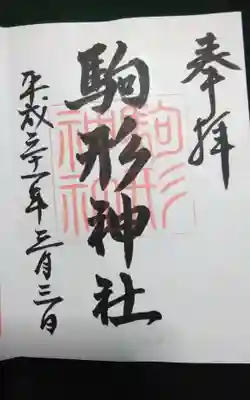 奉拝
駒形神社
平成三十一年三月三日
駒形
神社